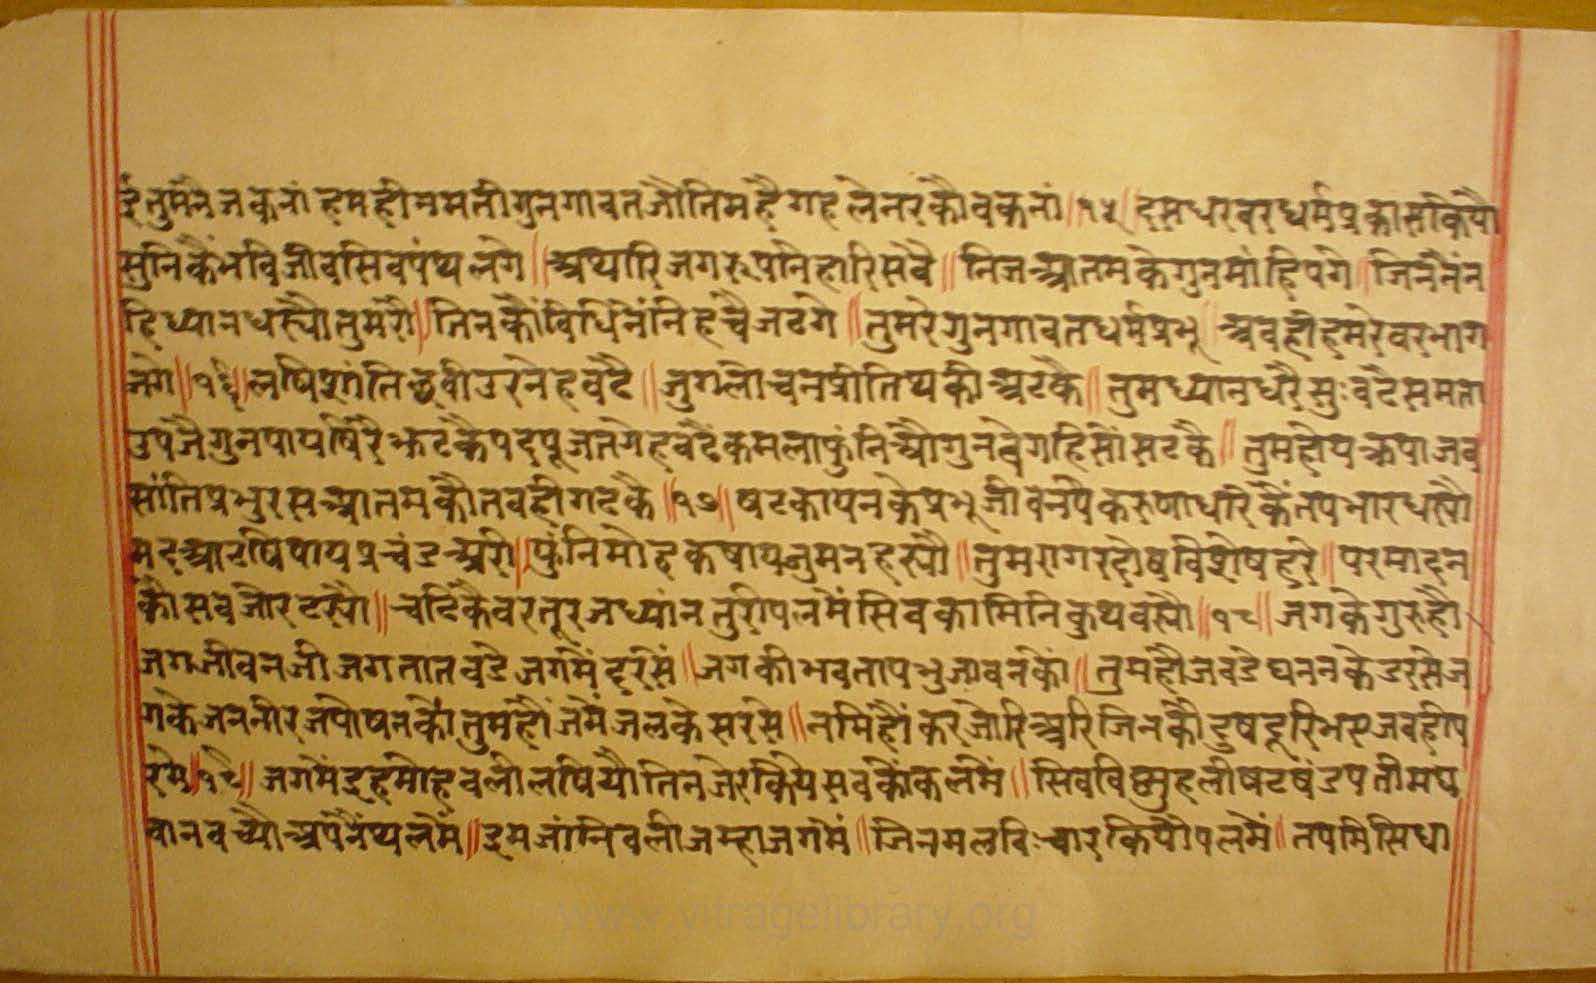 इं तुमनै जकनां हमहीनमतीगुनगावतजौतिमहैगहलेनरंकौवकनां ॥१५॥ दसधरवरधर्मप्रकासकियौ
सुनिकैंभविजीवसिवपंथलगे ॥ अथारिजगरूपनिहारिसवै ॥ निजआतमकेगुनमांहिपगे ॥ जिननैंन
हिध्यानधस्यौतुमरौ ॥ तिनकौंविधिनैंनिहचैजठगे ॥ तुमरेगुनगावतधर्मप्रभू ॥ अवहीहमरेवरभाग
जगे ॥१६॥ लषिशांतिछवीउरनेहवटै ॥ जुगलोचनप्रीतिथकीअटकै ॥ तुमध्यानधरैसुःवटैसमता
उपजैगुनपायषिरैझटकैपदपूजतगेहवटैंकमलाफुंनिऔगुनवेगहिसौंसटकै ॥ तुमहोयक्रपाजव
सांतिप्रभुरसआतमकौतवहीगटकै ॥१७॥ षटकायनकेप्रभूजीवनपैकरुणाधारिकैंतपभारधस्यौ
मदआठषिपायप्रचंडअरी ॥ फुंनिमोहकषायनुमनहस्यौ ॥ तुमरागरदोषविशेषहरे ॥ परमादन
कौसवजोरटस्यौ ॥ चटिकैवरतूरजध्यांनतुरीपलमेंसिवकामिनिकुथवस्यौ ॥१८॥ जगकेगुरुहौ
जगजीवनजीजगतातवडेजगमेंदरसें ॥ जगकीभवतापभुजावनकौं ॥ तुमहौजवडेघननकेडरसेज
गकेजननीरजपोषनकौंतुमहौंजमेंजलकेसरसे ॥ नमिहौंकरजोरिअरिजिनकौंदुषदूरिभएजवहीप
रसे ॥१९॥ जगमेंइहमोहवलीलषियौतिनजेरकियेसवकौंकलमें ॥ सिवविष्मुहलीषटषंडपतीमघ
वानवच्यौअपनैंथलमें ॥ इमजांनिवलीजम्हाजगमें ॥ जिनमलविःचारकियौपलमें ॥ तपमिसिधा
www.vitragelibrary.org